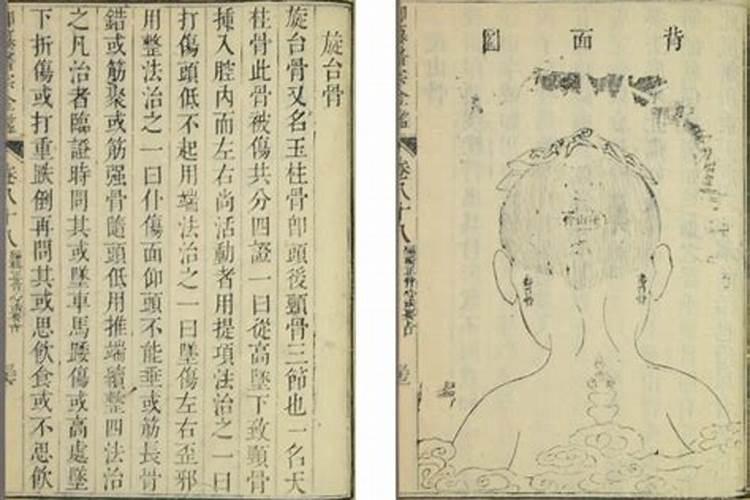 背面圖
卷八十八
旋台骨
旋台骨又名玉柱骨即頭後頸骨三節也一名天
柱骨此骨被傷共分四證一曰從高墜下致頸骨
揷入腔内而左右尚活動者用提項法治之一曰
打傷頭低不起用端法治之一曰墜傷左右歪邪
用整法治之一曰仆傷面仰頭不能垂或筋長骨
錯或筋聚或筋强骨隨頭低用推端續整四法治
之凡治者臨證時問其或墜車馬踒傷或高處墜
下折傷或打重跌倒再問其或思飲食或不思飲
卷八十八